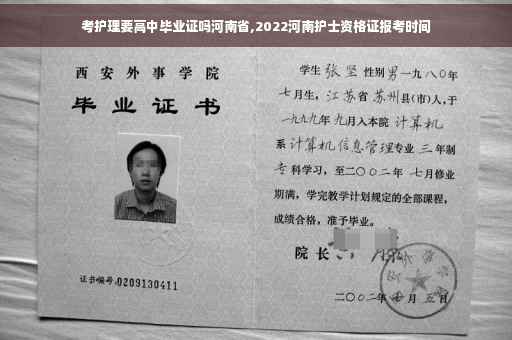 考护理要高中毕业证吗河南省,2022河南护士资格证报考时间
西安外事学院
毕业证书
证书编号:0209130411
学生 张坚 性别 男 一九八〇年
七月生, 江苏省 苏州 县(市)人,于
一九九九年 九月入本院 计算机
系 计算机信息管理 专业 三 年制
专 科学习, 至二〇〇二年 七月修业
期满, 学完教学计划规定的全部课程,
成绩合格, 准予毕业。
院长
二〇〇二年 月 五 日